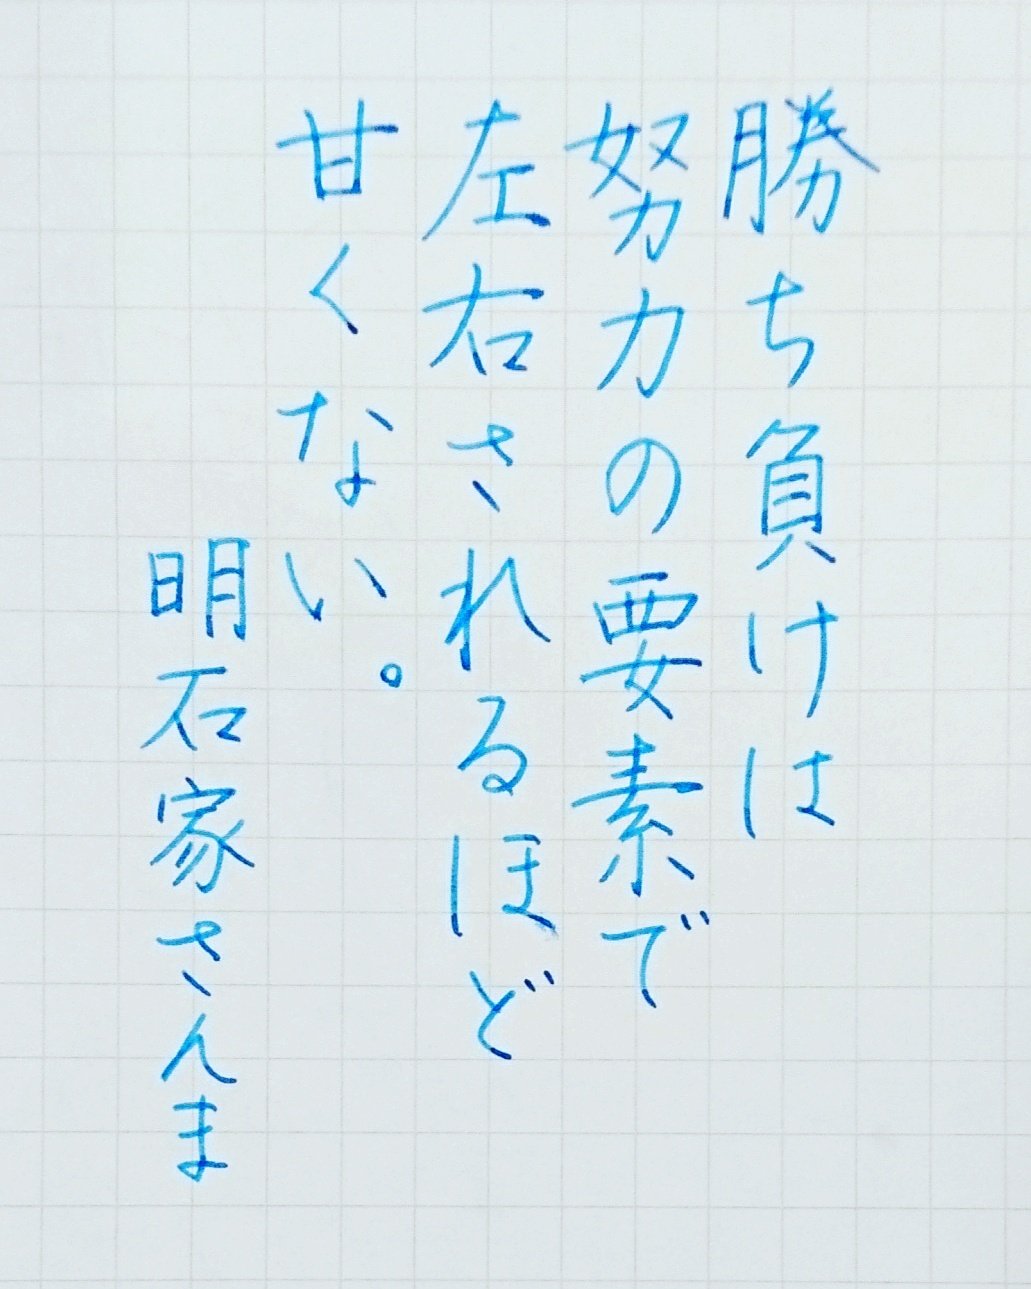 勝ち負けは
努力の要素で
左右されるほど
甘くない。
明石家さんま